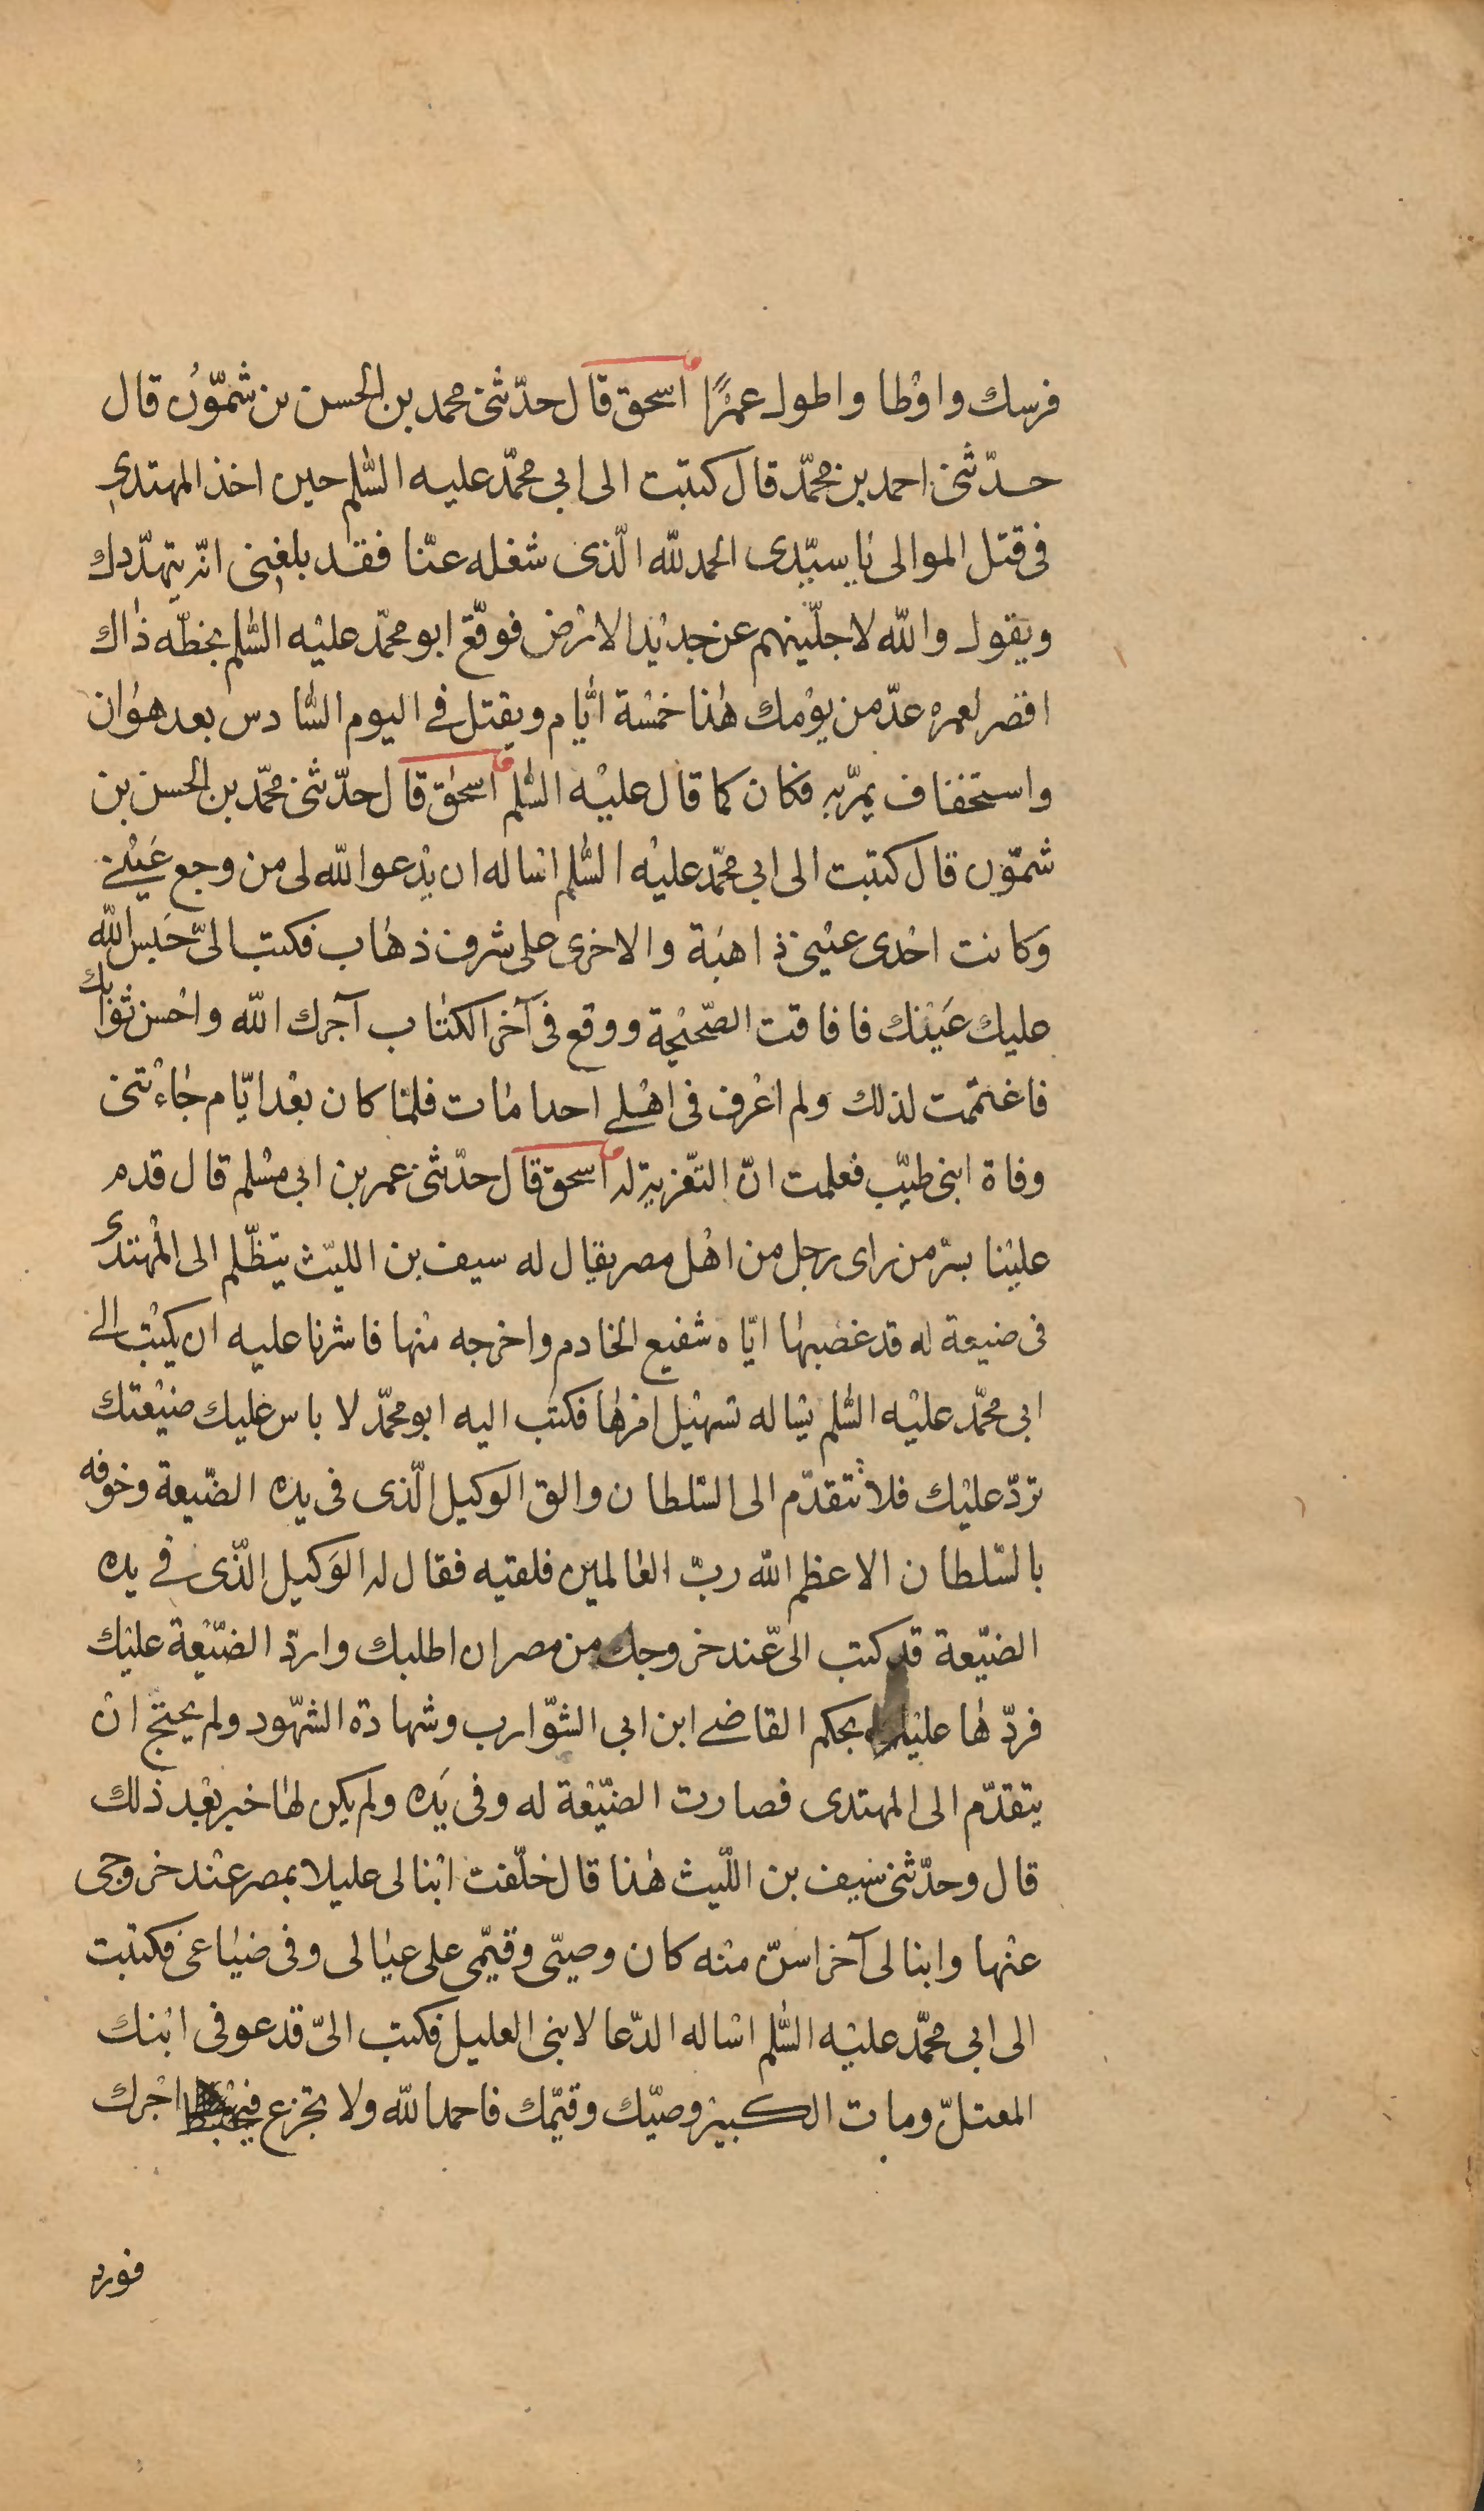 فرسك واوْطا واطول عمرًا اسحق قال حدّثنى محمد بن الحسن بن شمّوُن قال
حدّثنى احمد بن محمّد قال كتبت الى ابي محمّد عليه السّلم حين اخذ المهتدى
فى قتل الموالى يا سيّدى الحمد للّه الّذى شغله عنّا فقد بلغنى انّه يتهدّدك
ويقول واللّه لاجلّينهم عن جديْد الارْض فوقّع ابو محمّد عليْه السّلم بخطّه ذاك
اقصر لعمره عدّ من يوْمك هٰذا خمْسة ايّام ويقتل في اليوم السّادس بعد هوان
واستخفاف يمرّ به فكان كما قال عليْه السّلم اسحٰق قال حدّثنى محمّد بن الحسن بن
شمّون قال كتبت الى ابي محمّد عليْه السّلم اساله ان يدْعو اللّه لى من وجع عَيْنے
وكانت احْدى عيْنى ذاهبَة والاخرى على شرف ذهاب فكتب الىّ حَبس اللّه
عليك عَيْنك فافاقت الصّحيْحة ووقع فى آخر الكتاب آجرك اللّه واحْسن ثوابك
فاغتممت لذلك ولم اعْرف فى اهْلے احدا مات فلمّا كان بعْد ايّام جاءْتنى
وفاة ابنى طيّب فعلمت انّ التّعْزية له اسحق قال حدّثنى عمر بن ابي مسْلم قال قدم
عليْنا بسرّ من راى رجل من اهْل مصر يقال له سيف بن الليّث يتظّلم الى المْهتدى
فى ضيعة له قد غصبها ايّاه شفيع الخادم واخرجه منْها فاشرنا عليه ان يكتب الے
ابى محمّد عليْه السّلم يسْاله تسْهيْل امرها فكتب اليه ابو محمّد لا باس عليك ضيْعتك
تردّ عليْك فلا تتقدّم الى السّلطان والق الوكيل الّذى فى يده الضّيعة وخوفه
بالسّلطان الاعظم اللّه ربّ العالمين فلقيه فقال له الوَكيل الّذى في يده
الضيّعة قد كتب الىّ عند خروجك من مصر ان اطلبك واردّ الضّيْعة عليْك
فردّها عليْه بحكم القاضے ابن ابى الشّوارب وشهادة الشهّود ولم يحتج انْ
يتقدّم الى المهتدى فصارت الضّيْعة له وفى يَده ولم يكن لها خبر بعْد ذلك
قال وحدّثنى سَيف بن اللّيث هٰذا قال خلّفت ابْنا لى عليلا بمصر عنْد خروجى
عنْها وابنا لى آخر اسنّ منْه كان وصيّى وقيّمى على عيالى وفى ضياعى فكتبت
الى ابى محمّد عليْه السّلم اسْاله الدّعا لابنى العليل فكتب الىّ قد عوفى ابْنك
المعتلّ ومات الكبيْر وصيّك وقيّمك فاحمد اللّه ولا تجزع فيحْبط اجْرك
فورد